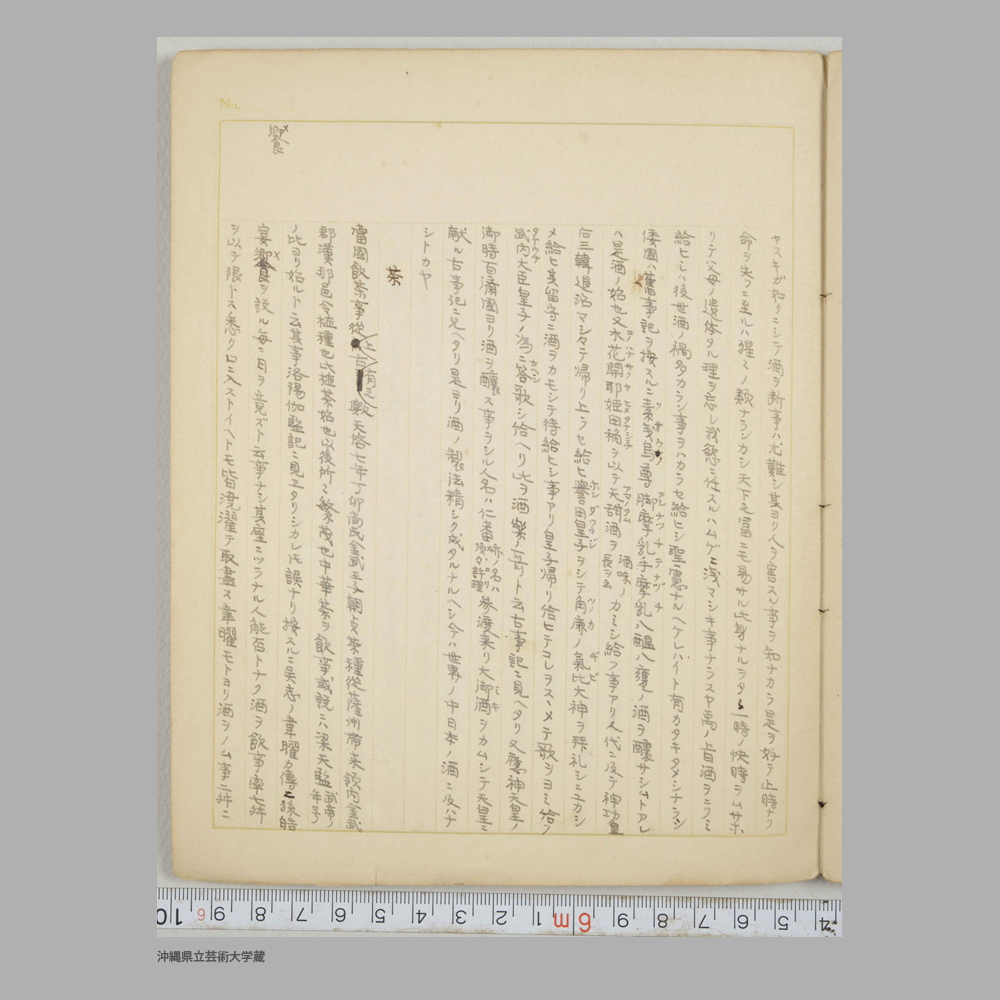 ヤスキガ如クニシテ酒ヲ断事ハ尤難シ其ヨリ人ヲ害スル事ヲ知ナカラ是ヲ好テ止時ナク
命ヲ失フニ至ルハ猩々ノ類ナランカシ天下之富ニモ易サル此身ナルヲタヽ一時ノ快時ヲムサホ
リテ父母ノ遺体タル理ヲ忘レ我慾ニ任スルハムゲニ浅マシキ事ナラスヤ禹ノ旨酒ヲニクミ
給ヒシハ後世酒ノ禍多カラン事ヲハカラセ給ヒシ聖慮ナルヘケレハイト有カタキタメシナラン
倭國ハ舊事記ヲ按スルニ素戔烏尊脚摩乳手摩乳八醞八甕ノ酒ヲ醸サシムトアレ
ハ是酒ノ始也又木花開耶姫田稲ヲ以テ天甜酒ヲカミシ給フ事アリ人代ニ及テ神功皇
后三韓退治マシタテ帰リ上ラセ給ヒ譽田皇子ヲシテ角鹿ノ氣比大神ヲ拝礼シニユカシ
メ給ヒ其留守ニ酒ヲカモシテ待給ヒシ事アリ皇子帰リ給ヒテコレヲスヽメテ歌ヲヨミ給フ
武内大臣皇子ノ為ニ答歌シ給ヘリ此ヲ酒樂ノ哥ト云古事記ニ見ヘタリ又應神天皇ノ
御時百済國ヨリ酒ヲ醸ス事ヲシル人名ハ仁番亦ノ名ハ須々許理参渡来リ大御酒ヲカムシテ天皇ニ
献ル古事記ニ見ヘタリ是ヨリ酒ノ製法精シク成タルナルヘシ今ハ世界ノ中日本ノ酒ニ及ハナ
シトカヤ
茶
當國飲茶事從上古有之歟天啓七年丁卯高氏金武王子朝貞茶種從薩州帯来領内金武
郡漢那邑令植種也此植茶始也以後所々繁茂也中華茶ヲ飲事或説ニハ梁天監武帝ノ年号
ノ比ヨリ始ルト云其事洛陽伽監記ニ見エタリシカレ𪜈誤ナリ按スルニ吴志ノ韋曜カ傳ニ孫皓
宴饗ヲ設ル毎ニ日ヲ竟ズト云事ナシ其座ニツラナル人能否トナク酒ヲ飲事率七舛
ヲ以テ限トス悉ク口ニ入ストイヘトモ皆澆灌テ取盡ス韋曜モトヨリ酒ヲノム事二舛ニ
饗
No.
沖縄県立芸術大学蔵